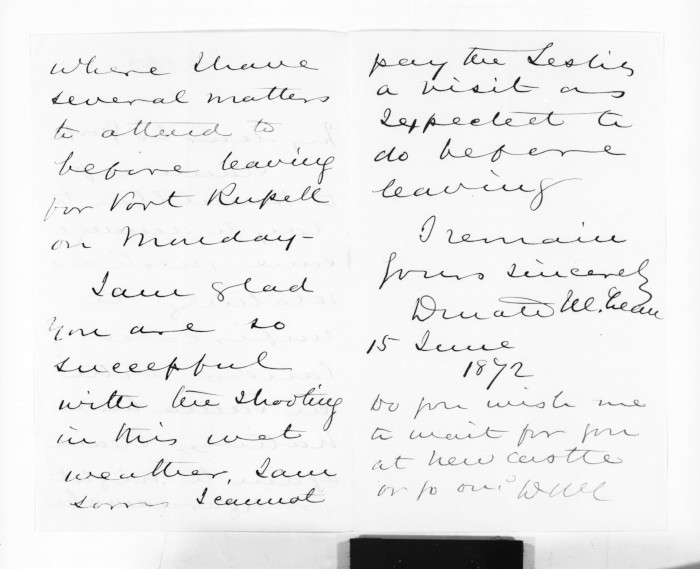 where I have
several matters
to attend to
before leaving
for Port Russell
on Monday -
I am glad
you are so
successful
with the shooting
in this wet
weather. I am
sorry I cannot
pay the Leslies
a visit as
I expected to
do before
leaving
I remain
Yours sincerely
Donald McLean
15 June
1872
Do you wish me
to wait for you
at Newcastle
or go on? DMcL